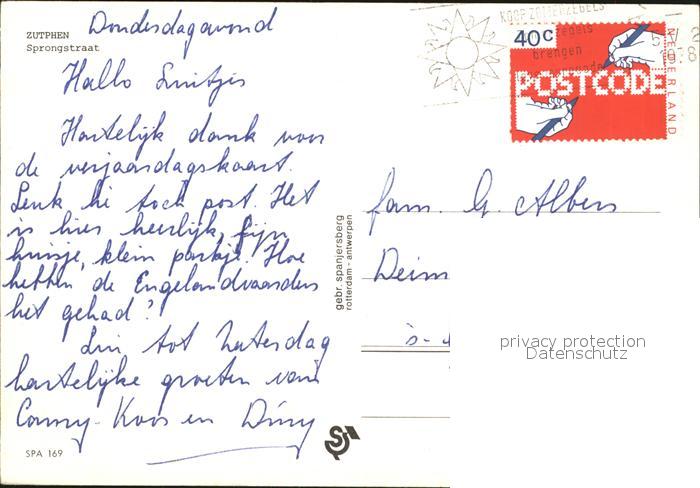 ZUTPHEN
Sprongstraat
Donderdagavond
Hallo Luitjes
Hartelijk dank voor
de verjaardagskaart.
Leuk hè toch post. Het
is hier heerlijk, fijn
huisje, klein parkje. Hoe
hebben de Engelandvaarders
het gehad?
tot zaterdag
hartelijke groeten van
Conny-Koos en Diny
SPA 169
gebr. spanjersberg
rotterdam - antwerpen
KOOP ZOMERZEGELS
zegels
brengen
40c
POSTCODE
NEDERLAND
fam. G. Albers
Deim
's-
privacy protection
Datenschutz